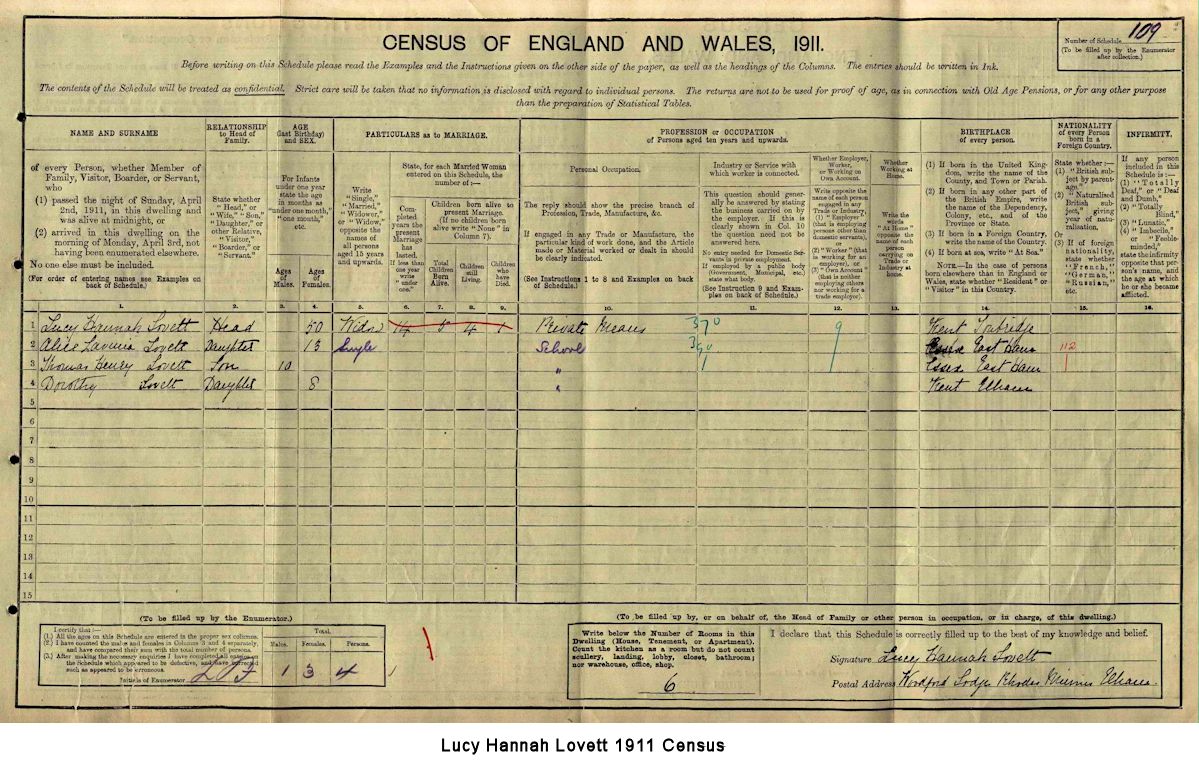 109
Number of Schedule
(To be filled up by the Enumerator
after collection.)
CENSUS OF ENGLAND AND WALES, 1911.
Before writing on this Schedule please read the Examples and the Instructions given on the other side of the paper, as well as the headings of the Columns. The entries should be written in Ink.
The contents of the Schedule will be treated as confidential. Strict care will be taken that no information is disclosed with regard to individual persons. The returns are not to be used for proof of age, as in connection with Old Age Pensions, or for any other purpose
than the preparation of Statistical Tables.
NAME AND SURNAME
of every Person, whether Member of
Family, Visitor, Boarder, or Servant,
who
(1) passed the night of Sunday, April
2nd, 1911, in this dwelling and
was alive at midnight, or
(2) arrived in this dwelling on the
morning of Monday, April 3rd, not
having been enumerated elsewhere.
No one else must be included.
(For order of entering names see Examples on
back of Schedule.)
RELATIONSHIP
to Head of
Family.
State whether
"Head," or
"Wife," "Son,"
"Daughter," or
other Relative,
"Visitor,"
"Boarder," or
"Servant."
AGE
(last Birthday)
and SEX.
For Infants
under one year
state the age
in months as
"under one month,"
"one month,"
etc.
Ages
of
Males.
Ages
of
Females.
PARTICULARS as to MARRIAGE.
Write
"Single,"
"Married,"
"Widower,"
or "Widow,"
opposite the
names of
all persons
aged 15 years
and upwards.
State, for each Married Woman
entered on this Schedule, the
number of:—
Completed
years the
present
Marriage
has
lasted.
If less than
one year
write
"under
one."
Children born alive to
present Marriage.
(If no children born
alive write "None" in
Column 7).
Total
Children
Born
Alive.
Children
still
Living.
Children
who
have
Died.
PROFESSION or OCCUPATION
of Persons aged ten years and upwards.
Personal Occupation.
The reply should show the precise branch of
Profession, Trade, Manufacture, &c.
If engaged in any Trade or Manufacture, the
particular kind of work done, and the Article
made or Material worked or dealt in should
be clearly indicated.
(See Instructions 1 to 8 and Examples on back
of Schedule.)
Industry or Service with
which worker is connected.
This question should gener-
ally be answered by stating
the business carried on by
the employer. If this is
clearly shown in Col. 10
the question need not be
answered here.
No entry needed for Domestic Ser-
vants in private employment.
If employed by a public body
(Government, Municipal, etc.)
state what body.
(See Instruction 9 and Exam-
ples on back of Schedule.)
Whether Employer,
Worker,
or Working on
Own Account.
Write opposite the
name of each person
engaged in any
Trade or Industry,
(1) "Employer"
(that is employing
persons other than
domestic servants),
or
(2) "Worker" (that
is working for an
employer), or
(3) "Own Account"
(that is neither
employing others
nor working for a
trade employer).
Whether
Working at
Home.
Write the
words
"At Home"
opposite the
name of each
person
carrying on
Trade or
Industry at
home.
BIRTHPLACE
of every person.
(1) If born in the United King-
dom, write the name of the
County, and Town or Parish.
(2) If born in any other part of
the British Empire, write
the name of the Dependency,
Colony, etc., and of the
Province or State.
(3) If born in a Foreign Country,
write the name of the Country.
(4) If born at sea, write "At Sea."
NOTE.—In the case of persons
born elsewhere than in England or
Wales, state whether "Resident" or
"Visitor" in this Country.
NATIONALITY
of every Person
born in a
Foreign Country.
State whether:—
(1) "British sub-
ject by parent-
age,"
(2) "Naturalised
British sub-
ject," giving
year of natu-
ralisation.
Or
(3) If of foreign
nationality,
state whether
"French,"
"German,"
"Russian,"
etc.
INFIRMITY.
If any person
included in this
Schedule is:—
(1) "Totally
Deaf," or "Deaf
and Dumb,"
(2) "Totally
Blind,"
(3) "Lunatic,"
(4) "Imbecile,"
or "Feeble-
minded,"
state the infirmity
opposite that per-
son's name, and
the age at which
he or she became
afflicted.
1. 2. 3. 4. 5. 6. 7. 8. 9. 10. 11. 12. 13. 14. 15. 16.
1 Lucy Hannah Lovett Head 50 Widow 14 5 4 1 Private Means 370 9 Kent Tonbridge
2 Alice Lavinia Lovett Daughter 13 Single School 390 East Ham 112
3 Thomas Henry Lovett Son 10 " Essex East Ham
4 Dorothy Lovett Daughter 8 " Kent Elham
5
6
7
8
9
10
11
12
13
14
15
(To be filled up by the Enumerator.)
I certify that:—
(1.) All the ages on this Schedule are entered in the proper sex columns.
(2.) I have counted the males and females in Columns 3 and 4 separately,
and have compared their sum with the total number of persons.
(3.) After making the necessary enquiries I have completed all entries on
the Schedule which appeared to be defective, and have corrected
such as appeared to be erroneous.
Initials of Enumerator
Total.
Males. Females. Persons.
1 3 4
(To be filled up by, or on behalf of, the Head of Family or other person in occupation, or in charge, of this dwelling.)
Write below the Number of Rooms in this
Dwelling (House, Tenement, or Apartment).
Count the kitchen as a room but do not count
scullery, landing, lobby, closet, bathroom;
nor warehouse, office, shop.
6
I declare that this Schedule is correctly filled up to the best of my knowledge and belief.
Signature Lucy Hannah Lovett
Postal Address Lodge Rhodes Minnis Elham
Lucy Hannah Lovett 1911 Census